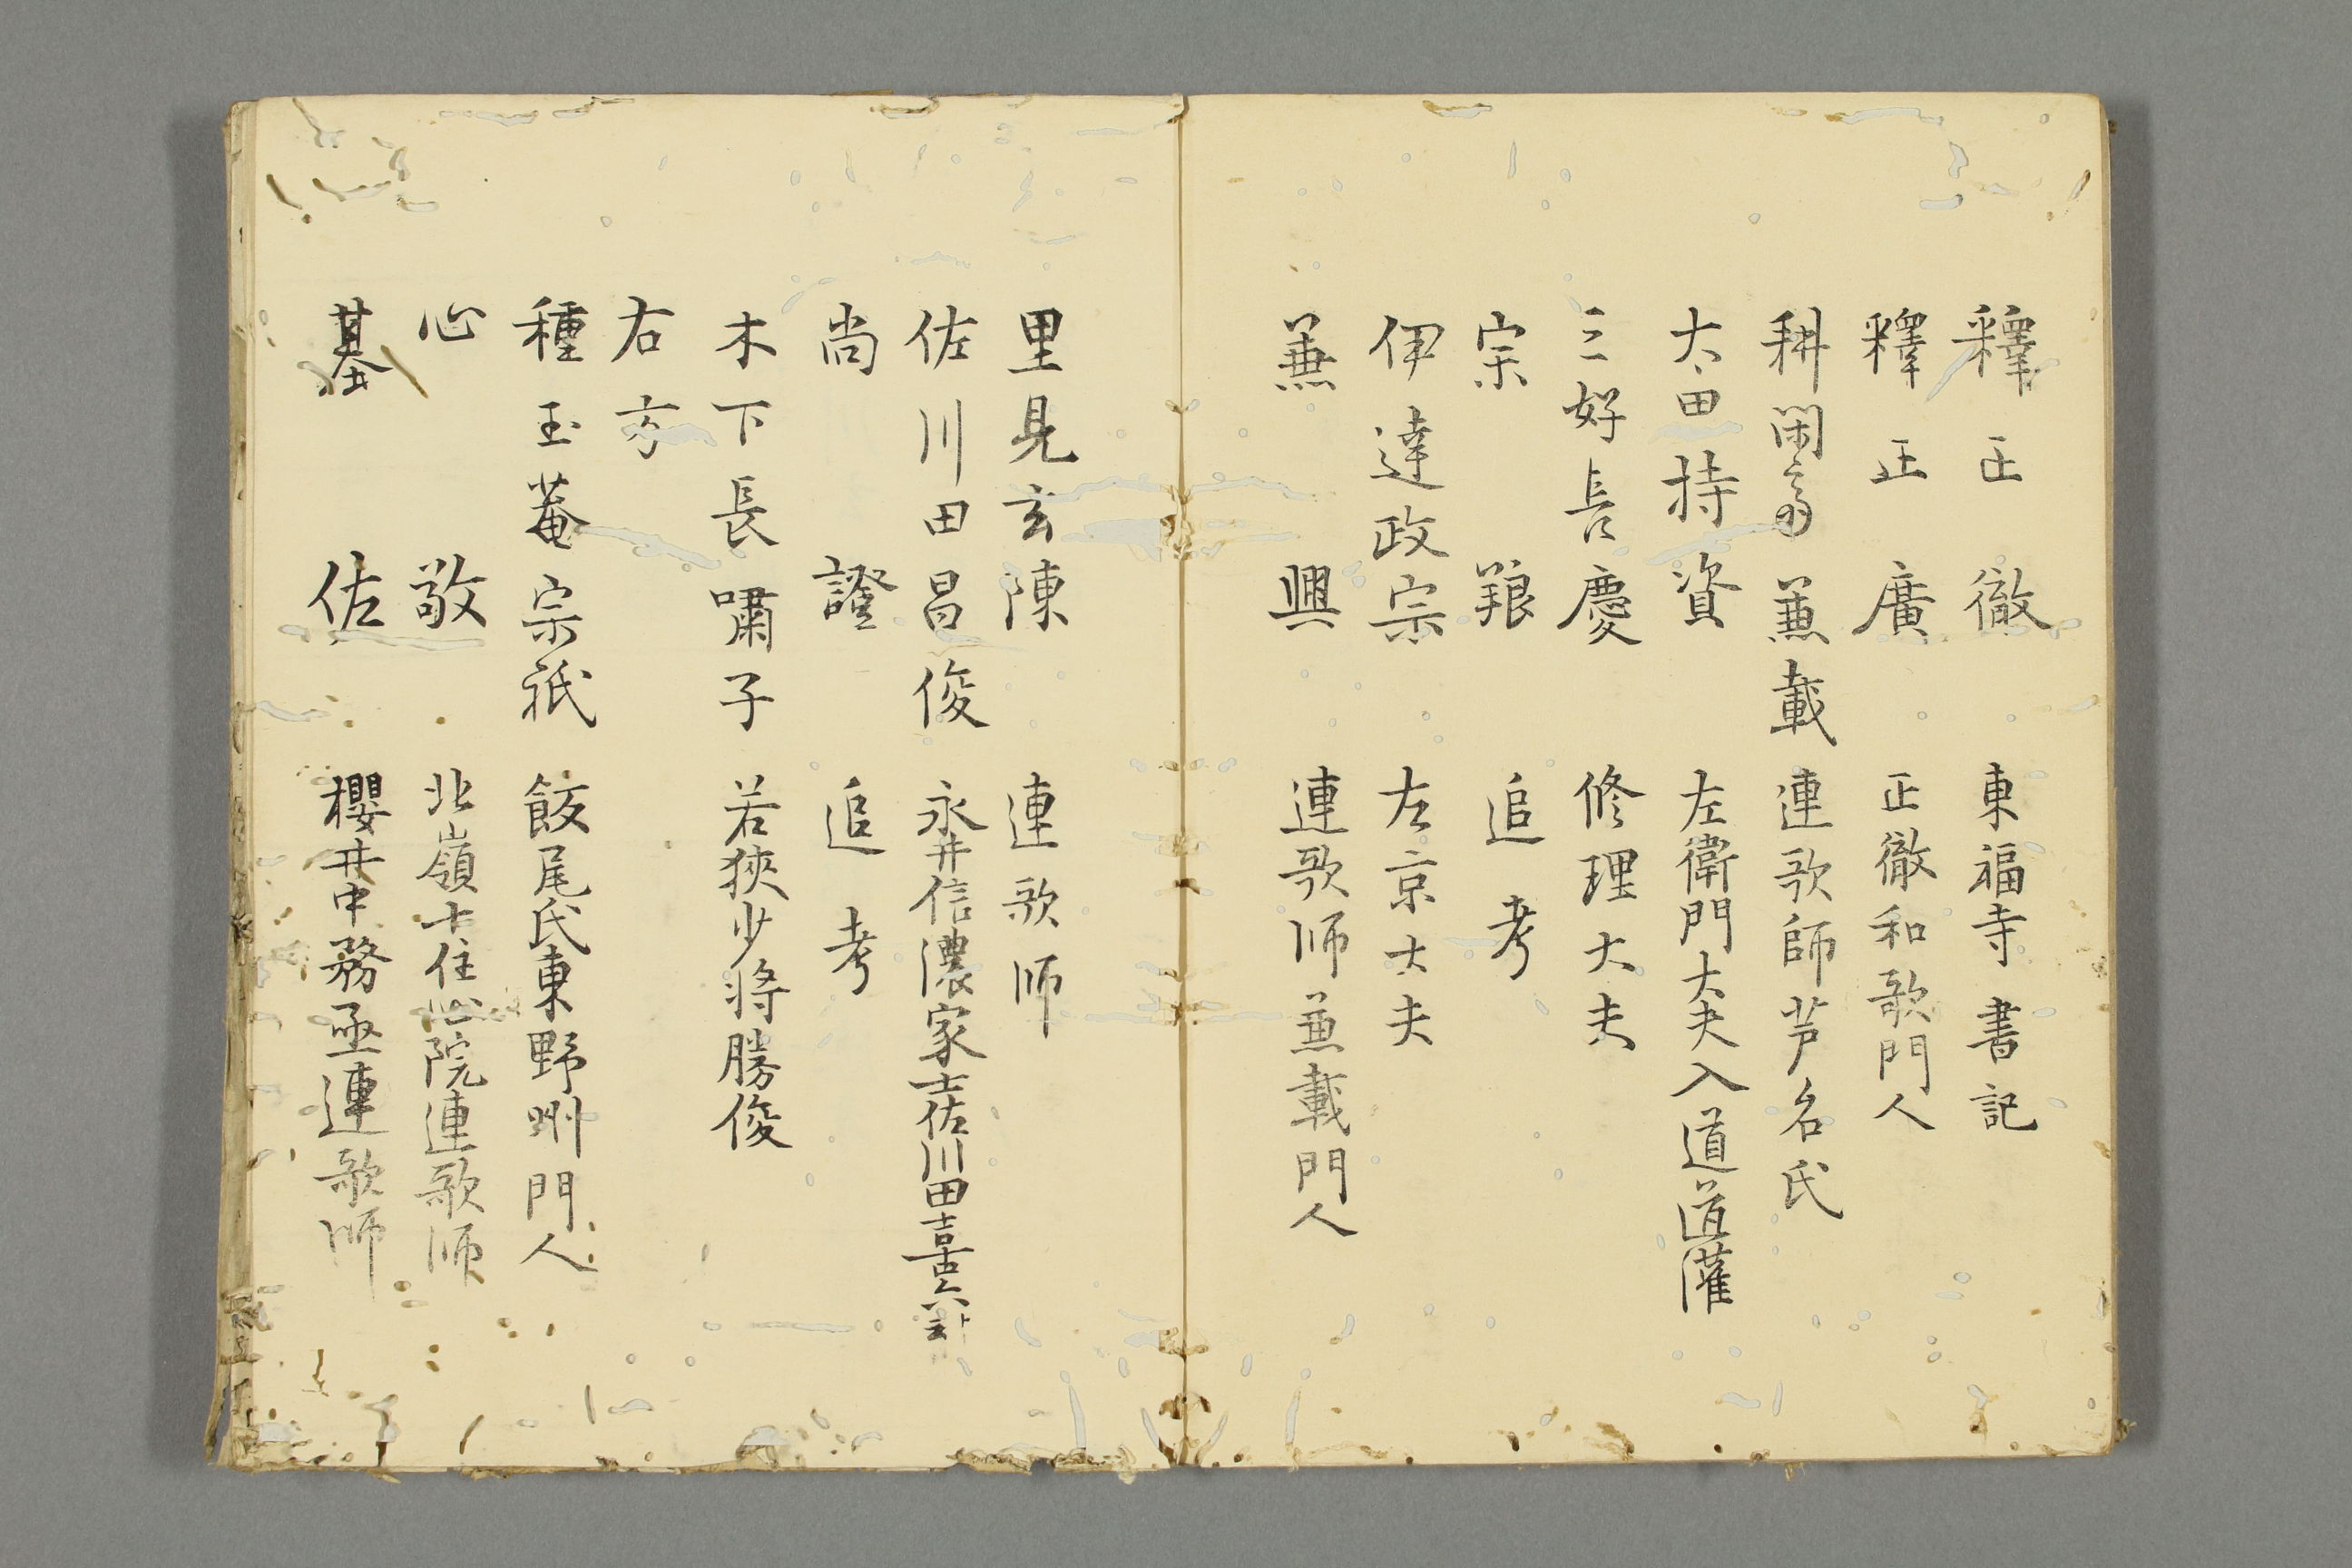 釋正徹 東福寺書記
釋正廣 正徹和歌門人
耕閑斎兼載 連歌師芦名氏
太田持資 左衛門大夫入道道灌
三好長慶 修理大夫
宗 追考
伊達政宗 左京大夫
兼興 連歌师兼載門人
里見玄陳 連歌师
佐川田昌俊 永井信濃家士佐川田喜六
尚證 追考
木下長嘯子 若狹少将勝俊
右方
種玉菴宗祇 飯尾氏東野州門人
心敬 北嶺十住心院連歌师
基佐 櫻井中務丞連歌师